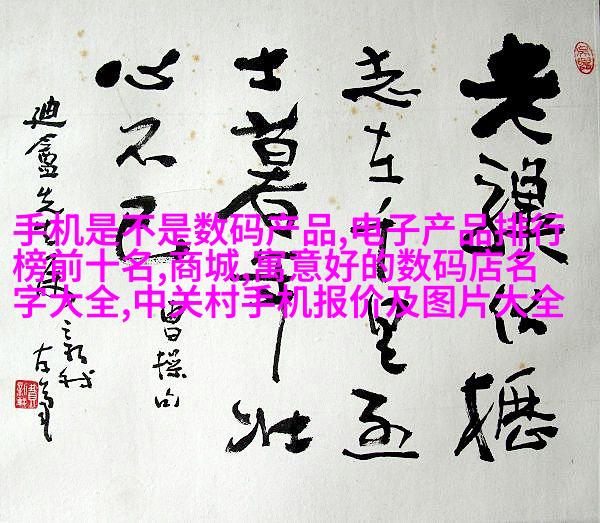 手机是不是数码产品,电子产品排行
榜前十名,商城,寓意好的数码店名
字大全,中关村手机报价及图片大全
老驥伏櫪
志在千里烈
士暮年壯
心不已
曹操句